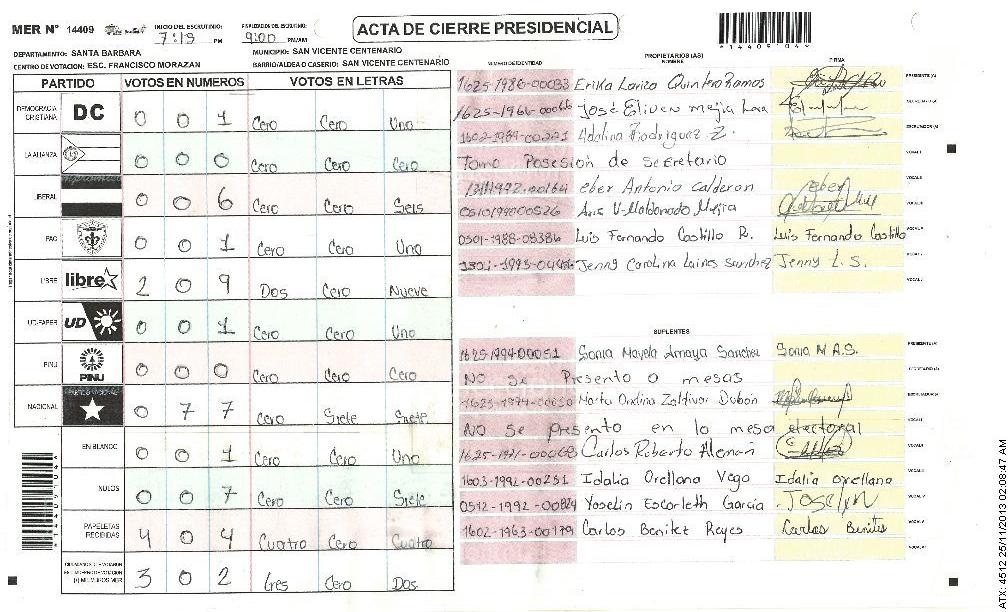 MER Nº 14409
INICIO DEL ESCRUTINIO:
7:19 PM
FINALIZACION DEL ESCRUTINIO:
9:00 PM/AM
ACTA DE CIERRE PRESIDENCIAL
*14409-04*
DEPARTAMENTO: SANTA BARBARA
MUNICIPIO: SAN VICENTE CENTENARIO
CENTRO DE VOTACION: ESC. FRANCISCO MORAZAN
BARRIO/ALDEA O CASERIO: SAN VICENTE CENTENARIO
PARTIDO VOTOS EN NUMEROS VOTOS EN LETRAS
DEMOCRACIA CRISTIANA DC 0 0 1 Cero Cero Uno
LA ALIANZA 0 0 0 Cero Cero Cero
LIBERAL 0 0 6 Cero Cero Seis
PAC 0 0 1 Cero Cero Uno
LIBRE libre 2 0 9 Dos Cero Nueve
UD-FAPER UD 0 0 1 Cero Cero Uno
PINU PINU 0 0 0 Cero Cero Cero
NACIONAL 0 7 7 Cero Siete Siete
EN BLANCO 0 0 1 Cero Cero Uno
NULOS 0 0 7 Cero Cero Siete
PAPELETAS RECIBIDAS 4 0 4 Cuatro Cero Cuatro
3 0 2 tres Cero Dos
NUMERO DE IDENTIDAD
PROPIETARIOS (AS)
NOMBRE
FIRMA
1625-1986-00033 Erika Lariza Quintero Ramos PRESIDENTE (A)
José Eliven mejia SECRETARIO (A)
1602-1989-00221 Adelina Rodriguez Z. ESCRUTADOR (A)
Tomo Posesión de secretario VOCAL I
eber Antonio Calderon eber VOCAL II
Maldonado Mejia VOCAL III
0501-1988-08386 Luis Fernando Castillo R. Luis Fernando Castillo
Jenny Carolina Laines Sanchez Jenny L. S.
SUPLENTES
1625-1994-00051 Sonia Mayela Amaya Sanchez Sonia M A.S. PRESIDENTE (A)
NO se Presento a mesas SECRETARIO (A)
Marta Ondina Zaldivar Dubon ESCRUTADOR (A)
NO se presento en la mesa electoral VOCAL I
1625-1971-00068 Carlos Roberto Alemán VOCAL II
1603-1992-00251 Idalia Orellana Vega Idalia orellana
0512-1992-00824 Yoselin Escorleth Garcia Joselyn
1602-1963-00179 Carlos Benitez Reyes Carlos Benites
ATX: 4512 25/11/2013 02:08:47 AM